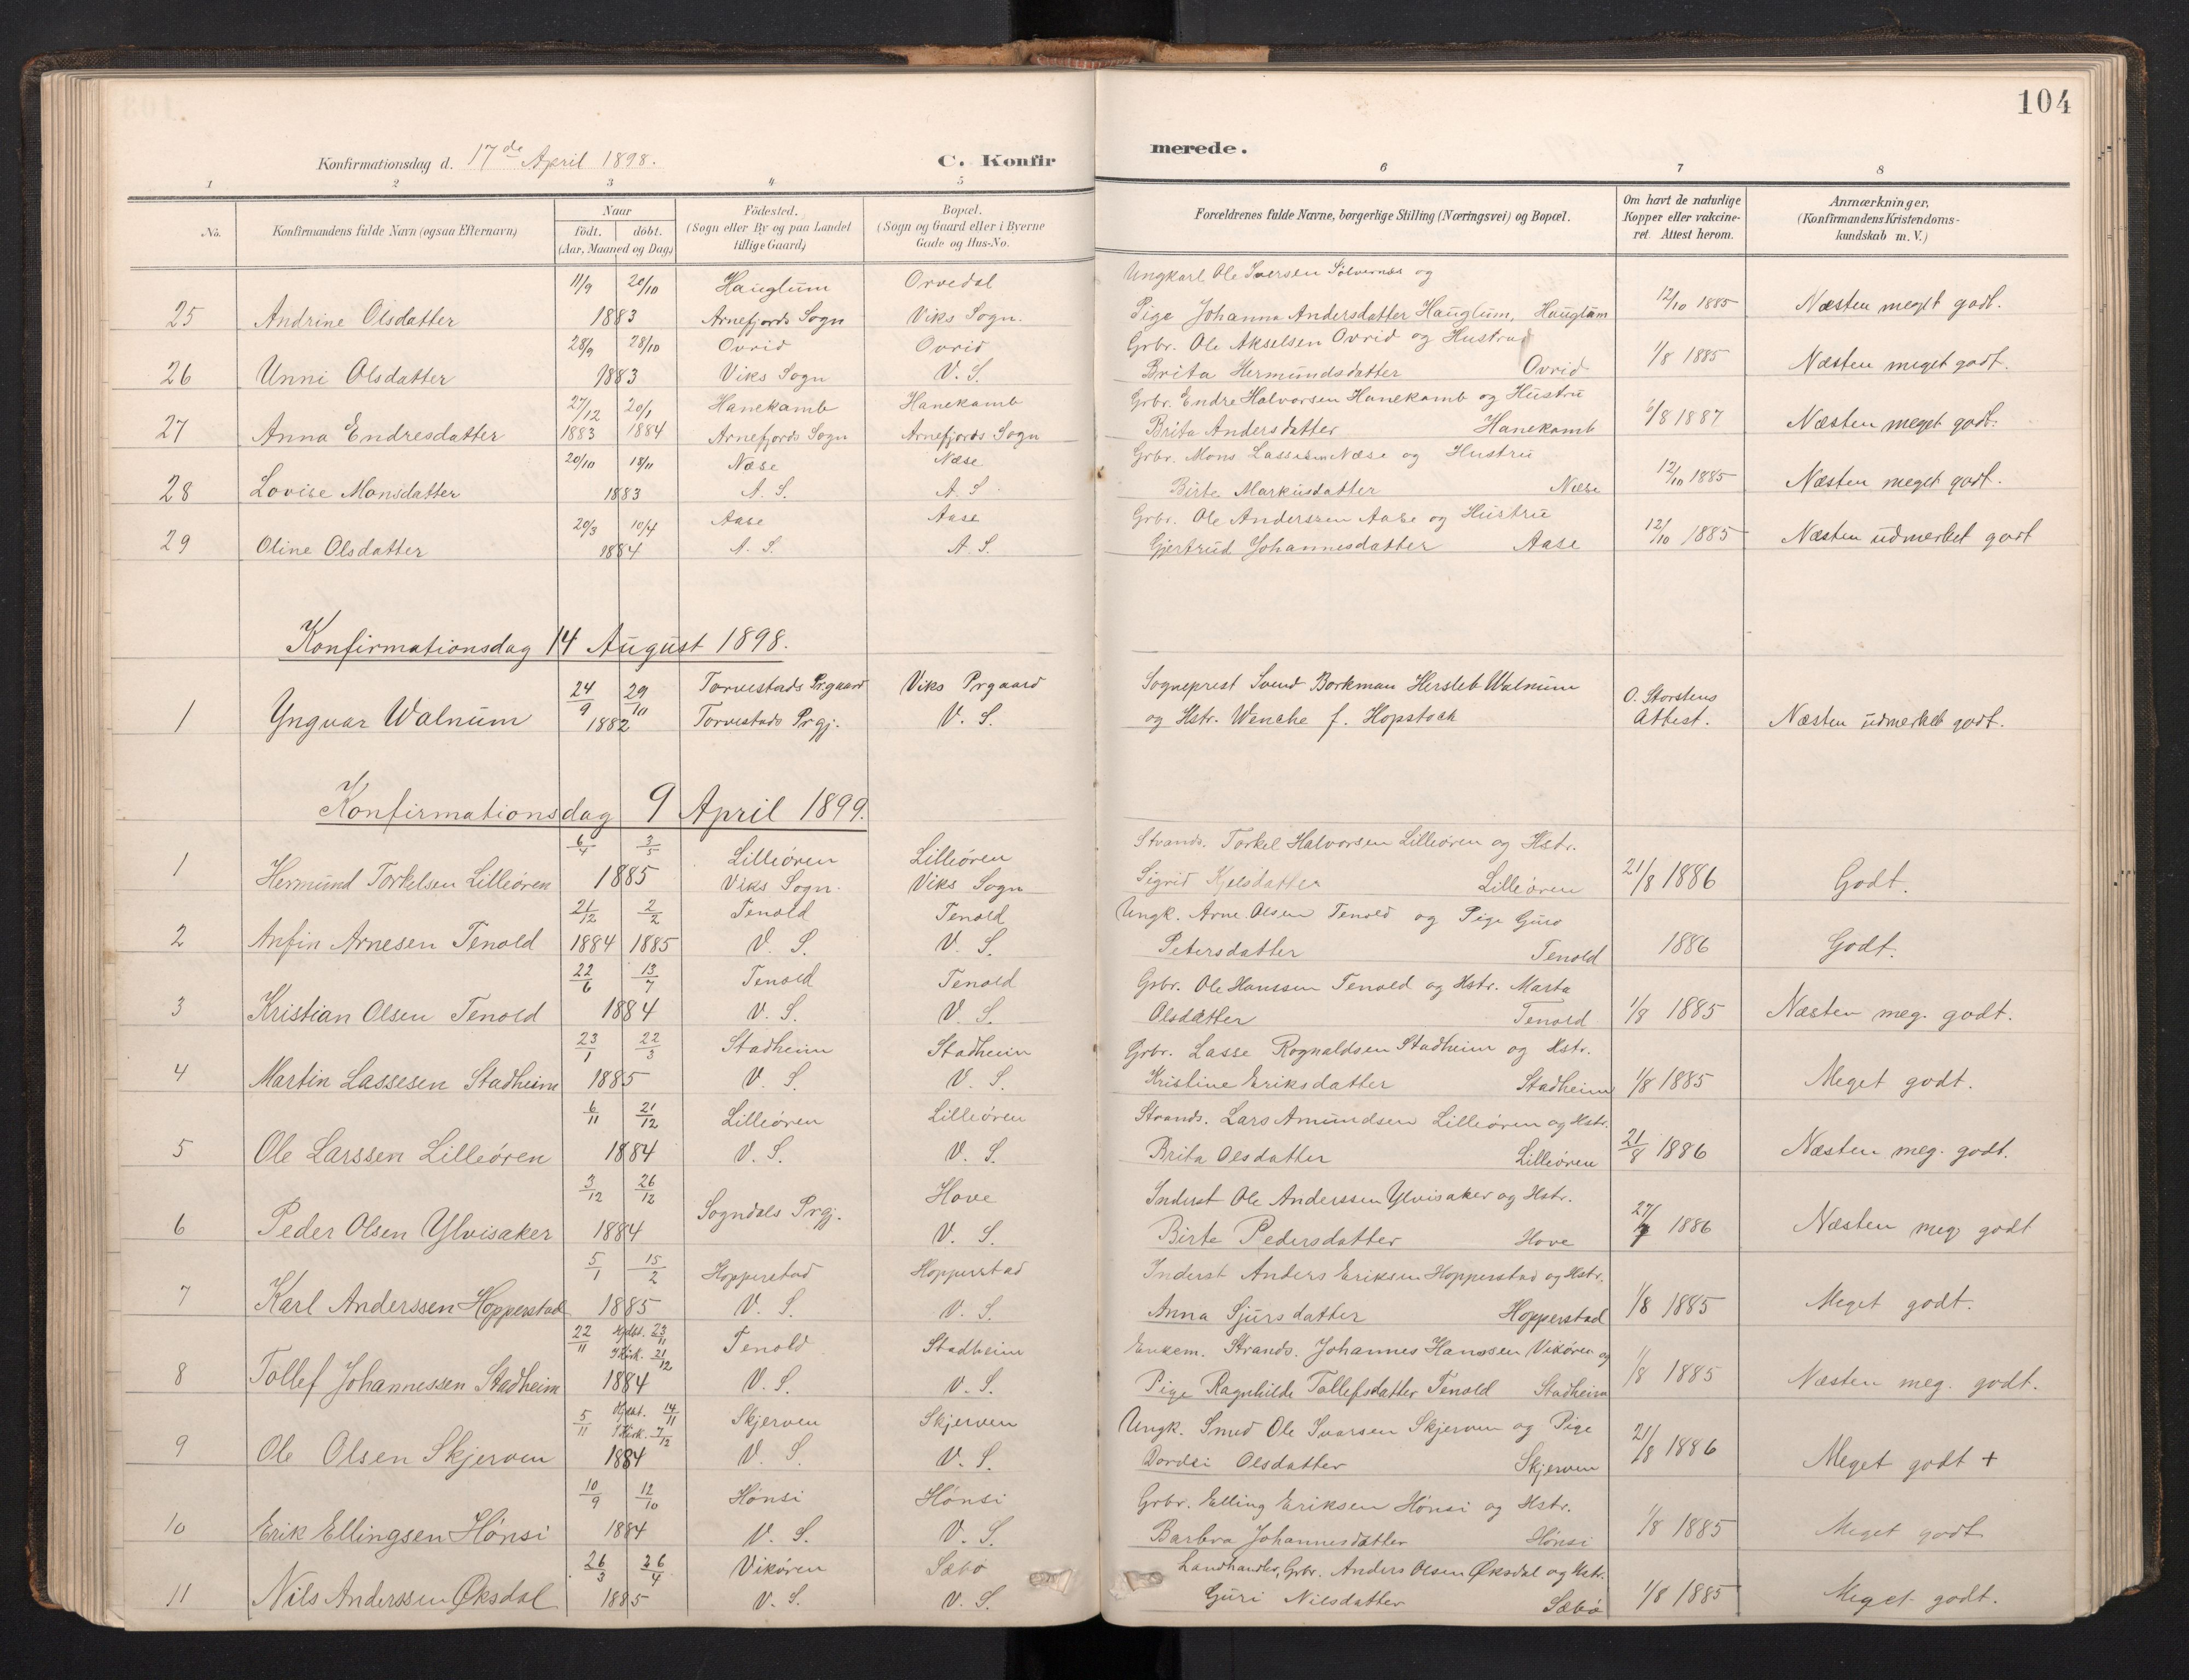 104
Konfirmationsdag d. 17de April 1898.
C. Konfirmerede.
1 2 3 4 5 6 7 8
No.
Konfirmandens fulde Navn (ogsaa Efternavn)
Naar
födt. döbt.
(Aar, Maaned og Dag)
Födested.
(Sogn eller By og paa Landet
tillige Gaard)
Bopæl.
(Sogn og Gaard eller i Byerne
Gade og Hus-No.
Forældrenes fulde Navne, borgerlige Stilling (Næringsvei) og Bopæl.
Om havt de naturlige
Kopper eller vakcine-
ret. Attest herom.
Anmærkninger,
(Konfirmandens Kristendoms-
kundskab m. V.)
11/9 20/10 Hauglum Orvedal Ungkarl Ole Iversen Sølvernæs og
25 Andrine Olsdatter 1883 Arnefjords Sogn Viks Sogn. Pige Johanna Andersdatter Hauglum, Hauglum 12/10 1885 Næsten meget godt.
28/9 28/10 Ovrid Ovrid Grbr. Ole Akselsen Ovrid og Hustru
26 Unni Olsdatter 1883 Viks Sogn V. S. Brita Hermundsdatter Ovrid 1/8 1885 Næsten meget godt.
27/12 20/1 Hanekamb Hanekamb Grbr. Endre Halvorsen Hanekamb og Hustru
27 Anna Endresdatter 1883 1884 Arnefjords Sogn Arnefjords Sogn Brita Andersdatter Hanekamb 6/8 1887 Næsten meget godt.
20/10 18/11 Næse Næse Grbr. Mons Lassesen Næse og Hustru
28 Lovise Monsdatter 1883 A. S. A. S. Birte Markusdatter Næse 12/10 1885 Næsten meget godt.
20/3 10/4 Aase Aase Grbr. Ole Anderssen Aase og Hustru
29 Oline Olsdatter 1884 A. S. A. S. Gjertrud Johannesdatter Aase 12/10 1885 Næsten udmerket godt
Konfirmationsdag 14 August 1898.
24/9 29/10 Torvestads Prgaard Viks Prgaard Sogneprest Svend Borkman Hersleb Walnum O. Storstens
1 Yngvar Walnum 1882 Torvestads Prgj. V. S. og Hstr. Wenche f. Hopstock Attest. Næsten udmerket godt.
Konfirmationsdag 9 April 1899.
6/4 3/5 Lilleören Lilleören Strands. Torkel Halvorsen Lilleören og Hstr.
1 Hermund Torkelsen Lilleören 1885 Viks Sogn. Viks Sogn Sigrid Kjelsdatter Lilleören 21/8 1886 Godt.
21/12 2/2 Tenold Tenold Ungk. Arne Olsen Tenold og Pige Guro
2 Anfin Arnesen Tenold 1884 1885 V. S. V. S. Petersdatter Tenold 1886 Godt.
22/6 13/7 Tenold Tenold Grbr. Ole Hanssen Tenold og Hstr. Marta
3 Kristian Olsen Tenold 1884 V. S. V. S. Olsdatter Tenold 1/8 1885 Næsten meg. godt.
23/1 22/3 Stadheim Stadheim Grbr. Lasse Rognaldsen Stadheim og Hstr.
4 Martin Lassesen Stadheim 1885 V. S. V. S. Kristine Eriksdatter Stadheim 1/8 1885 Meget godt.
6/11 21/12 Lilleören Lilleören Strands. Lars Amundsen Lilleören og Hstr.
5 Ole Larssen Lilleören 1884 V. S. V. S. Brita Olsdatter Lilleören 21/8 1886 Næsten meg. godt.
3/12 26/12 Hove Inderst Ole Anderssen Ylvisaker og Hstr.
6 Peder Olsen Ylvisaker 1884 Sogndals Prgj. V. S. Birte Pedersdatter Hove 27/7 1886 Næsten meg godt
5/1 15/2 Hopperstad Hopperstad Inderst Anders Eriksen Hopperstad og Hstr.
7 Karl Anderssen Hopperstad 1885 V. S. V. S. Anna Sjursdatter Hopperstad 1/8 1885 Meget godt.
22/11 Hjdbt. 23/11 I Kirk. 21/12 Tenold Stadheim Enkem. Strands. Johannes Hanssen Vikören og
8 Tollef Johannessen Stadheim 1884 V. S. V. S. Pige Ragnhilde Tollefsdatter Tenold Stadheim 1/8 1885 Næsten meg. godt.
5/11 Hjdbt. 14/11 I Kirk. 7/12 Skjerven Skjerven Ungk. Smed Ole Ivarsen Skjerven og Pige
9 Ole Olsen Skjerven 1884 V. S. V. S. Dordei Olsdatter Skjerven 21/8 1886 Meget godt +
10/9 12/10 Hönsi Hönsi Grbr. Elling Eriksen Hönsi og Hstr.
10 Erik Ellingsen Hönsi 1884 V. S. V. S. Barbra Johannesdatter Hönsi 1/8 1885 Meget godt
26/3 26/4 Vikören Sæbö Landhandler, Grbr. Anders Olsen Øksdal og Hstr.
11 Nils Anderssen Øksdal 1885 V. S. V. S. Guri Nilsdatter Sæbö 1/8 1885 Meget godt.